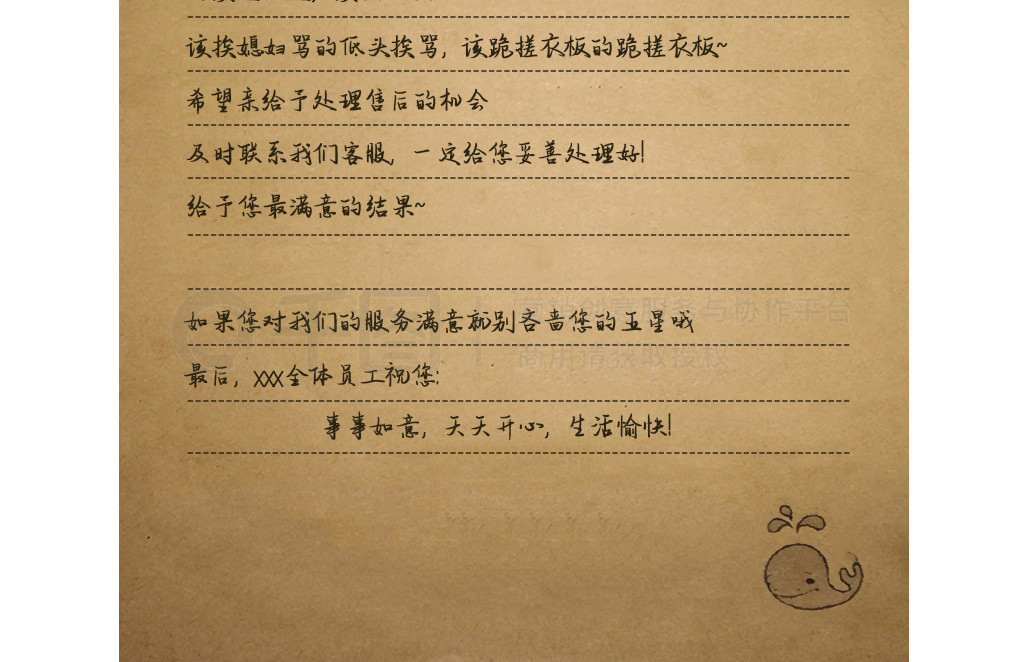 该挨媳妇骂的低头挨骂，该跪搓衣板的跪搓衣板~
希望亲给予处理售后的机会
及时联系我们客服，一定给您妥善处理好!
给予您最满意的结果~
千图
营销创意服务与协作平台
如果您对我们的服务满意就别吝啬您的五星哦
商用请获取授权
最后，xxx全体员工祝您:
事事如意，天天开心，生活愉快!